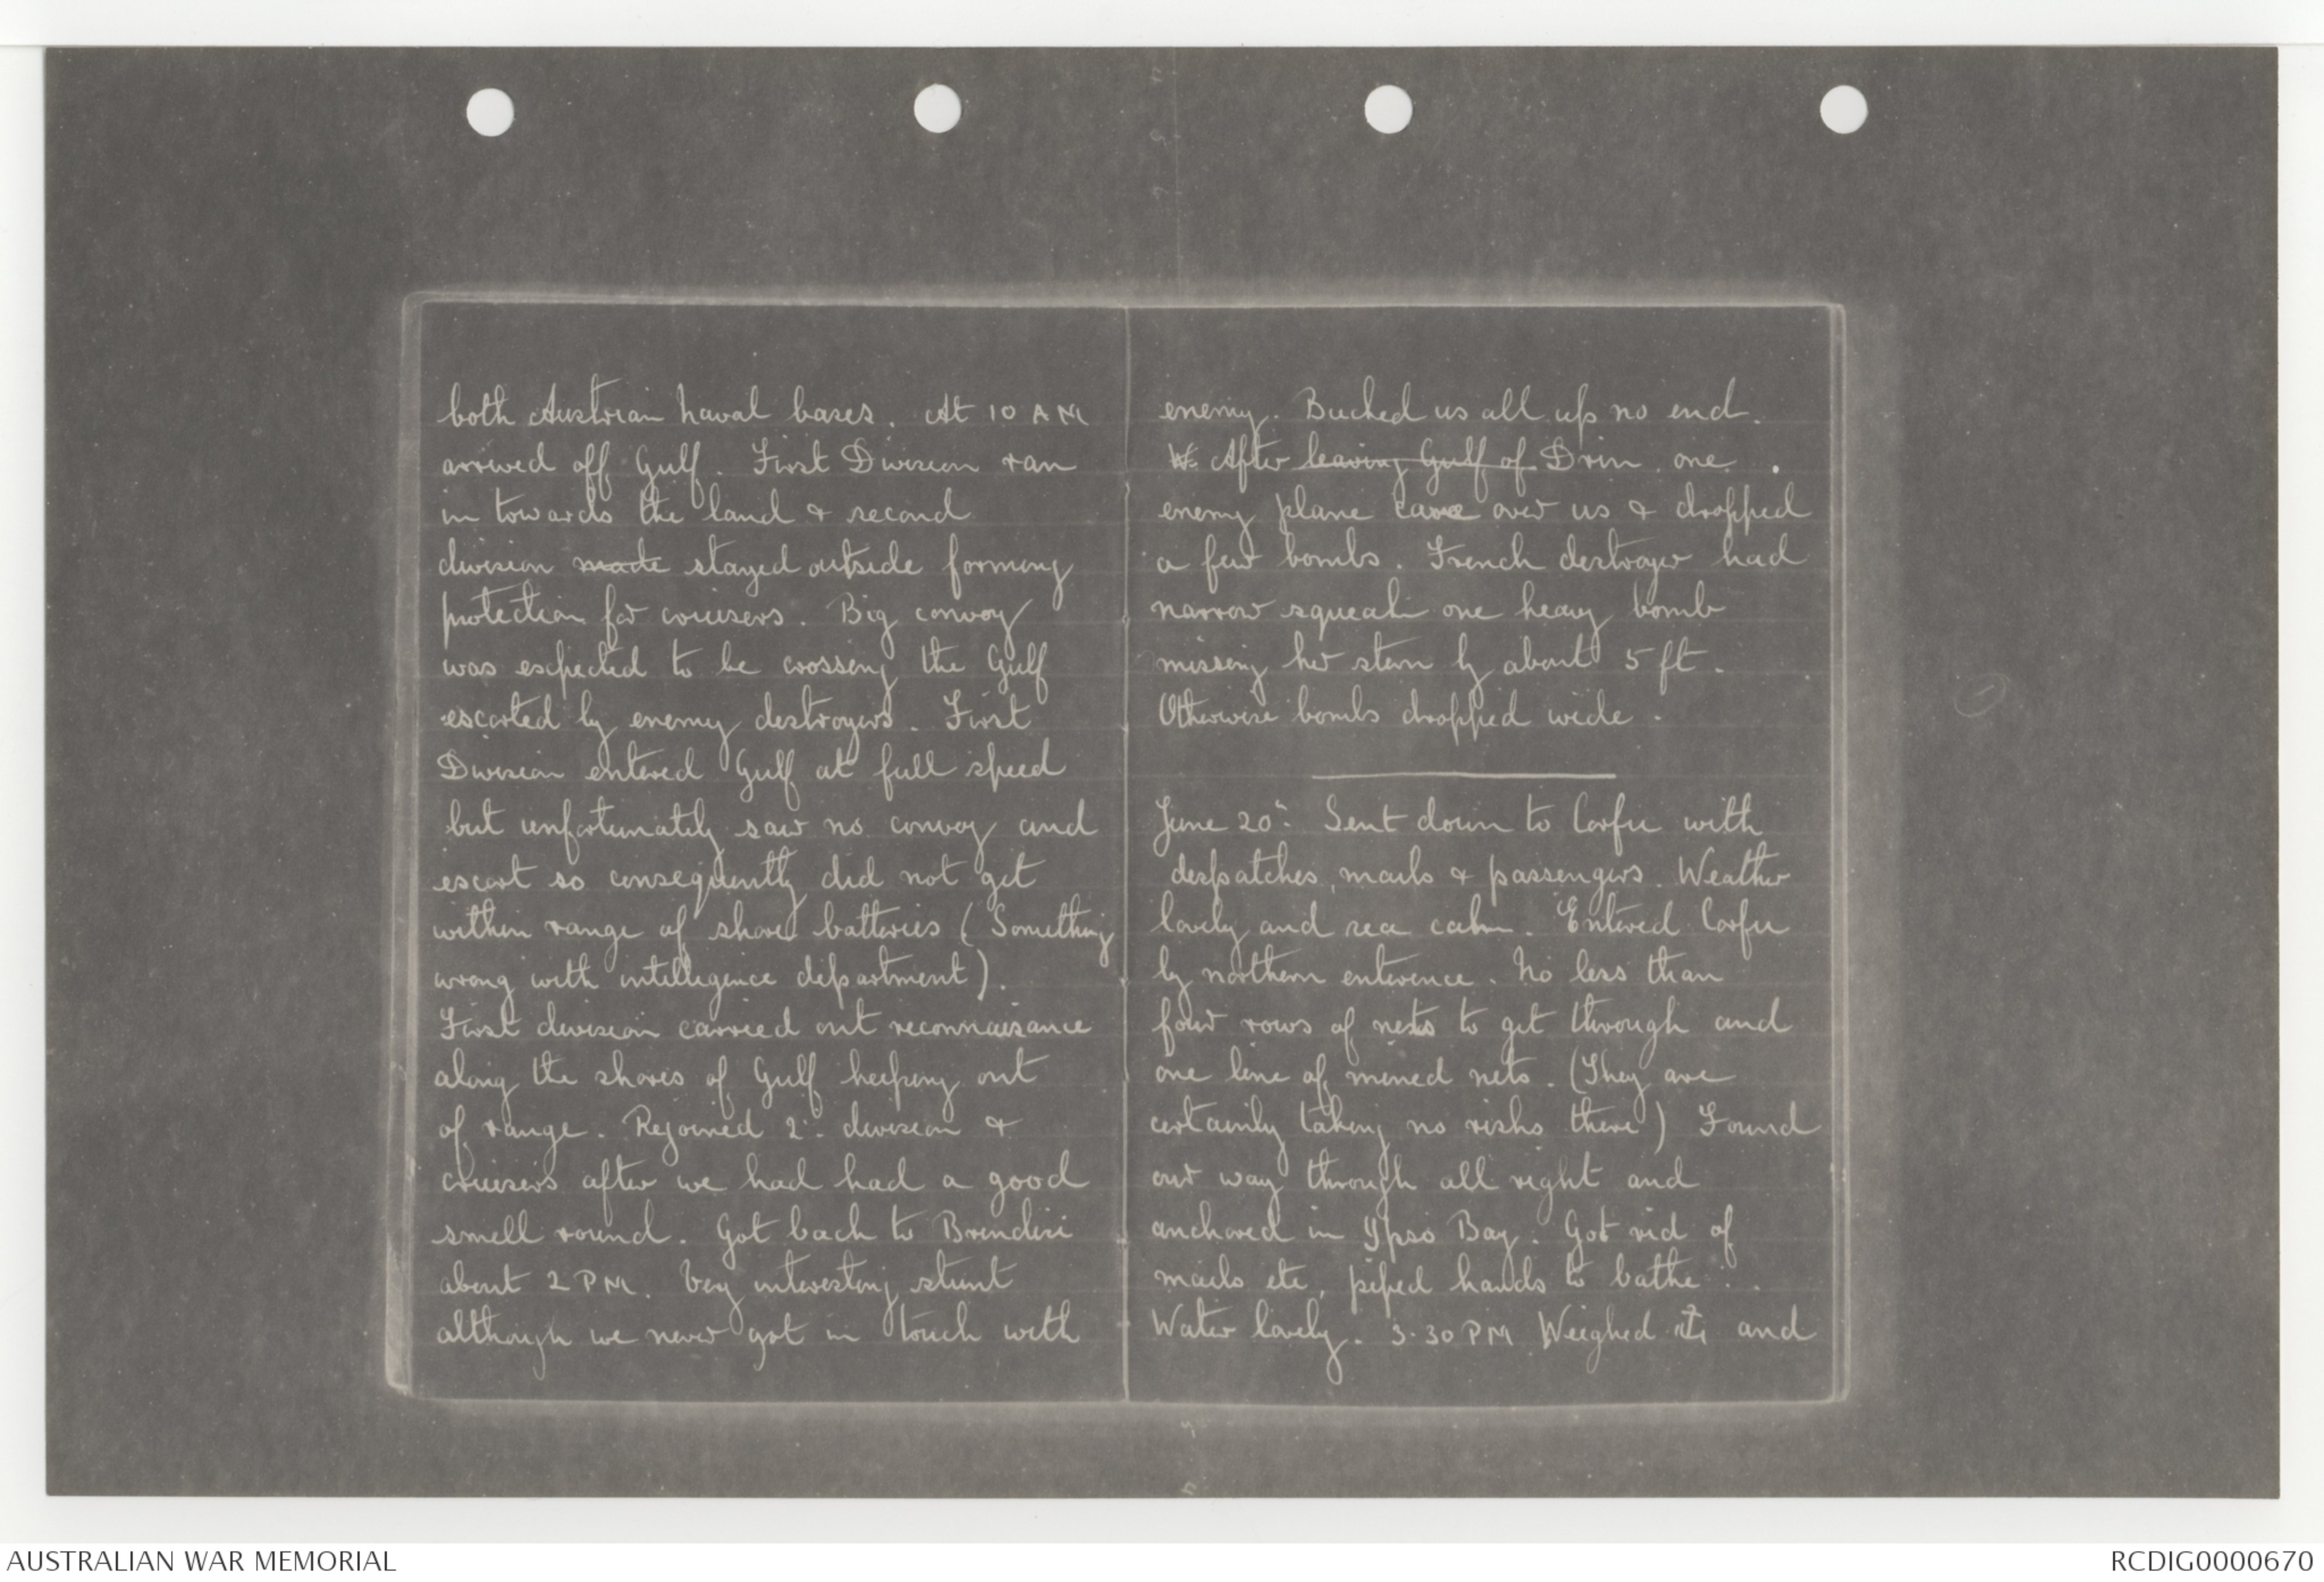 both Austrian naval bases. At 10 AM
arrived off Gulf. First Division ran
in towards the land & second
division made stayed outside forming
protection for cruisers. Big convoy
was expected to be crossing the Gulf
escorted by enemy destroyers. First
Division entered Gulf at full speed
but unfortunately saw no convoy and
escort so consequently did not get
within range of shore batteries (Something
wrong with intelligence department).
First division carried out reconnaisance
along the shores of Gulf keeping out
of range. Rejoined 2nd division &
cruisers after we had had a good
smell round. Got back to Brindisi
about 2 PM. Very interesting stunt
although we never got in touch with
enemy. Bucked us all up no end.
W. After leaving Gulf of Drin one
enemy plane came over us & dropped
a few bombs. French destroyer had
narrow squeak one heavy bomb
missing her stern by about 5 ft.
Otherwise bombs dropped wide.
June 20th Sent down to Corfu with
despatches, mails & passengers. Weather
lovely and sea calm. Entered Corfu
by northern enterence. No less than
four rows of nets to get through and
one line of mined nets. (They are
certainly taking no risks there) Found
our way through all right and
anchored in Ypso Bay. Got rid of
mails etc, piped hands to bathe.
Water lovely. 3.30 PM Weighed and
AUSTRALIAN WAR MEMORIAL
RCDIG0000670